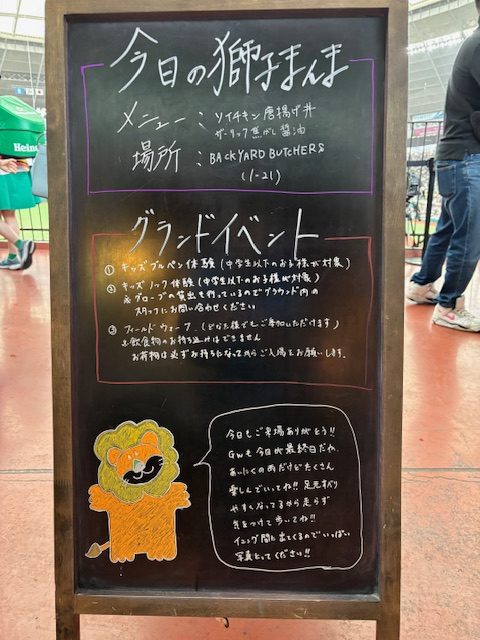 Hein
今日の獅子まんま
メニュー：ソイチキン唐揚げ丼
ガーリック焦がし醤油
場所：BACKYARD BUTCHERS
(1-21)
グランドイベント
① キッズブルペン体験（中学生以下のお子様が対象）
② キッズノック体験（中学生以下のお子様が対象）
※グローブの貸出も行っているのでグラウンド内の
スタッフにお問い合わせください
③ フィールドウォーク（どなた様でもご参加いただけます）
※飲食物のお持ち込みはできません
お荷物は必ずお持ちになってからご入場をお願いします。
今日もご来場ありがとう!!
GWも今日が最終日だね。
あいにくの雨だけどたくさん
楽しんでいってね!! 足元すべり
やすくなってるから走らず
気をつけて歩いてね!!
イニング間に出てくるのでいっぱい
写真とってください!!